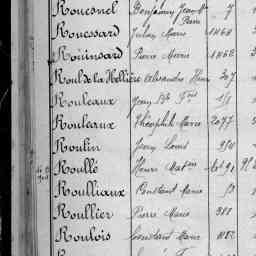 Rouesnel Benjamin Jean Mie 7
Pierre
Rouessard Julien Marie 1468
Rouinsard Pierre Marie 1462
Roul de la Hellière Alexandre Henri 307
Rouleaux Jean Bte Fcois
Rouleaux Théophile Marie 2077
Roulin Jean Louis 980
Roullé Henri 91
Roulliaux Constant Marie
Roullier Pierre Marie 388
Roulois Constant Marie 1182